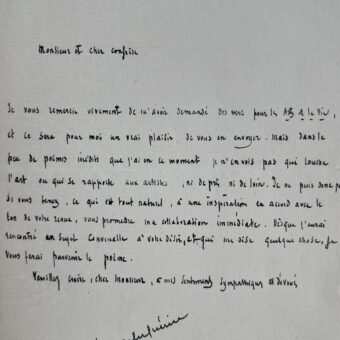 Monsieur et cher confrère
Je vous remercie vivement de m'avoir demandé des vers pour les Arts de la Vie,
et ce sera pour moi un vrai plaisir de vous en envoyer. Mais dans le
peu de poèmes inédits que j'ai en ce moment je n'en vois pas qui touche
l'art ou qui se rapporte aux artistes, ni de près ni de loin. Je ne puis donc pas
si vous tenez, ce qui est tout naturel, à une inspiration en accord avec le
ton de votre revue, vous promettre ma collaboration immédiate. Dès que j'aurai
rencontré un sujet convenable à votre désir, et qui me dise quelque chose, je
vous ferai parvenir le poème.
Veuillez croire, cher Monsieur, à mes sentiments sympathiques et dévoués
Guérin